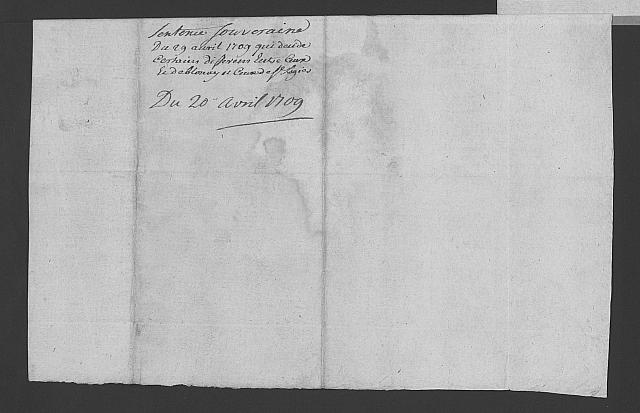 Sentence Souveraine
Du 29 avril 1709 qui decide
Certains differens entre Ceux
de Blonay et Ceux de St. Legier
Du 20 Avril 1709